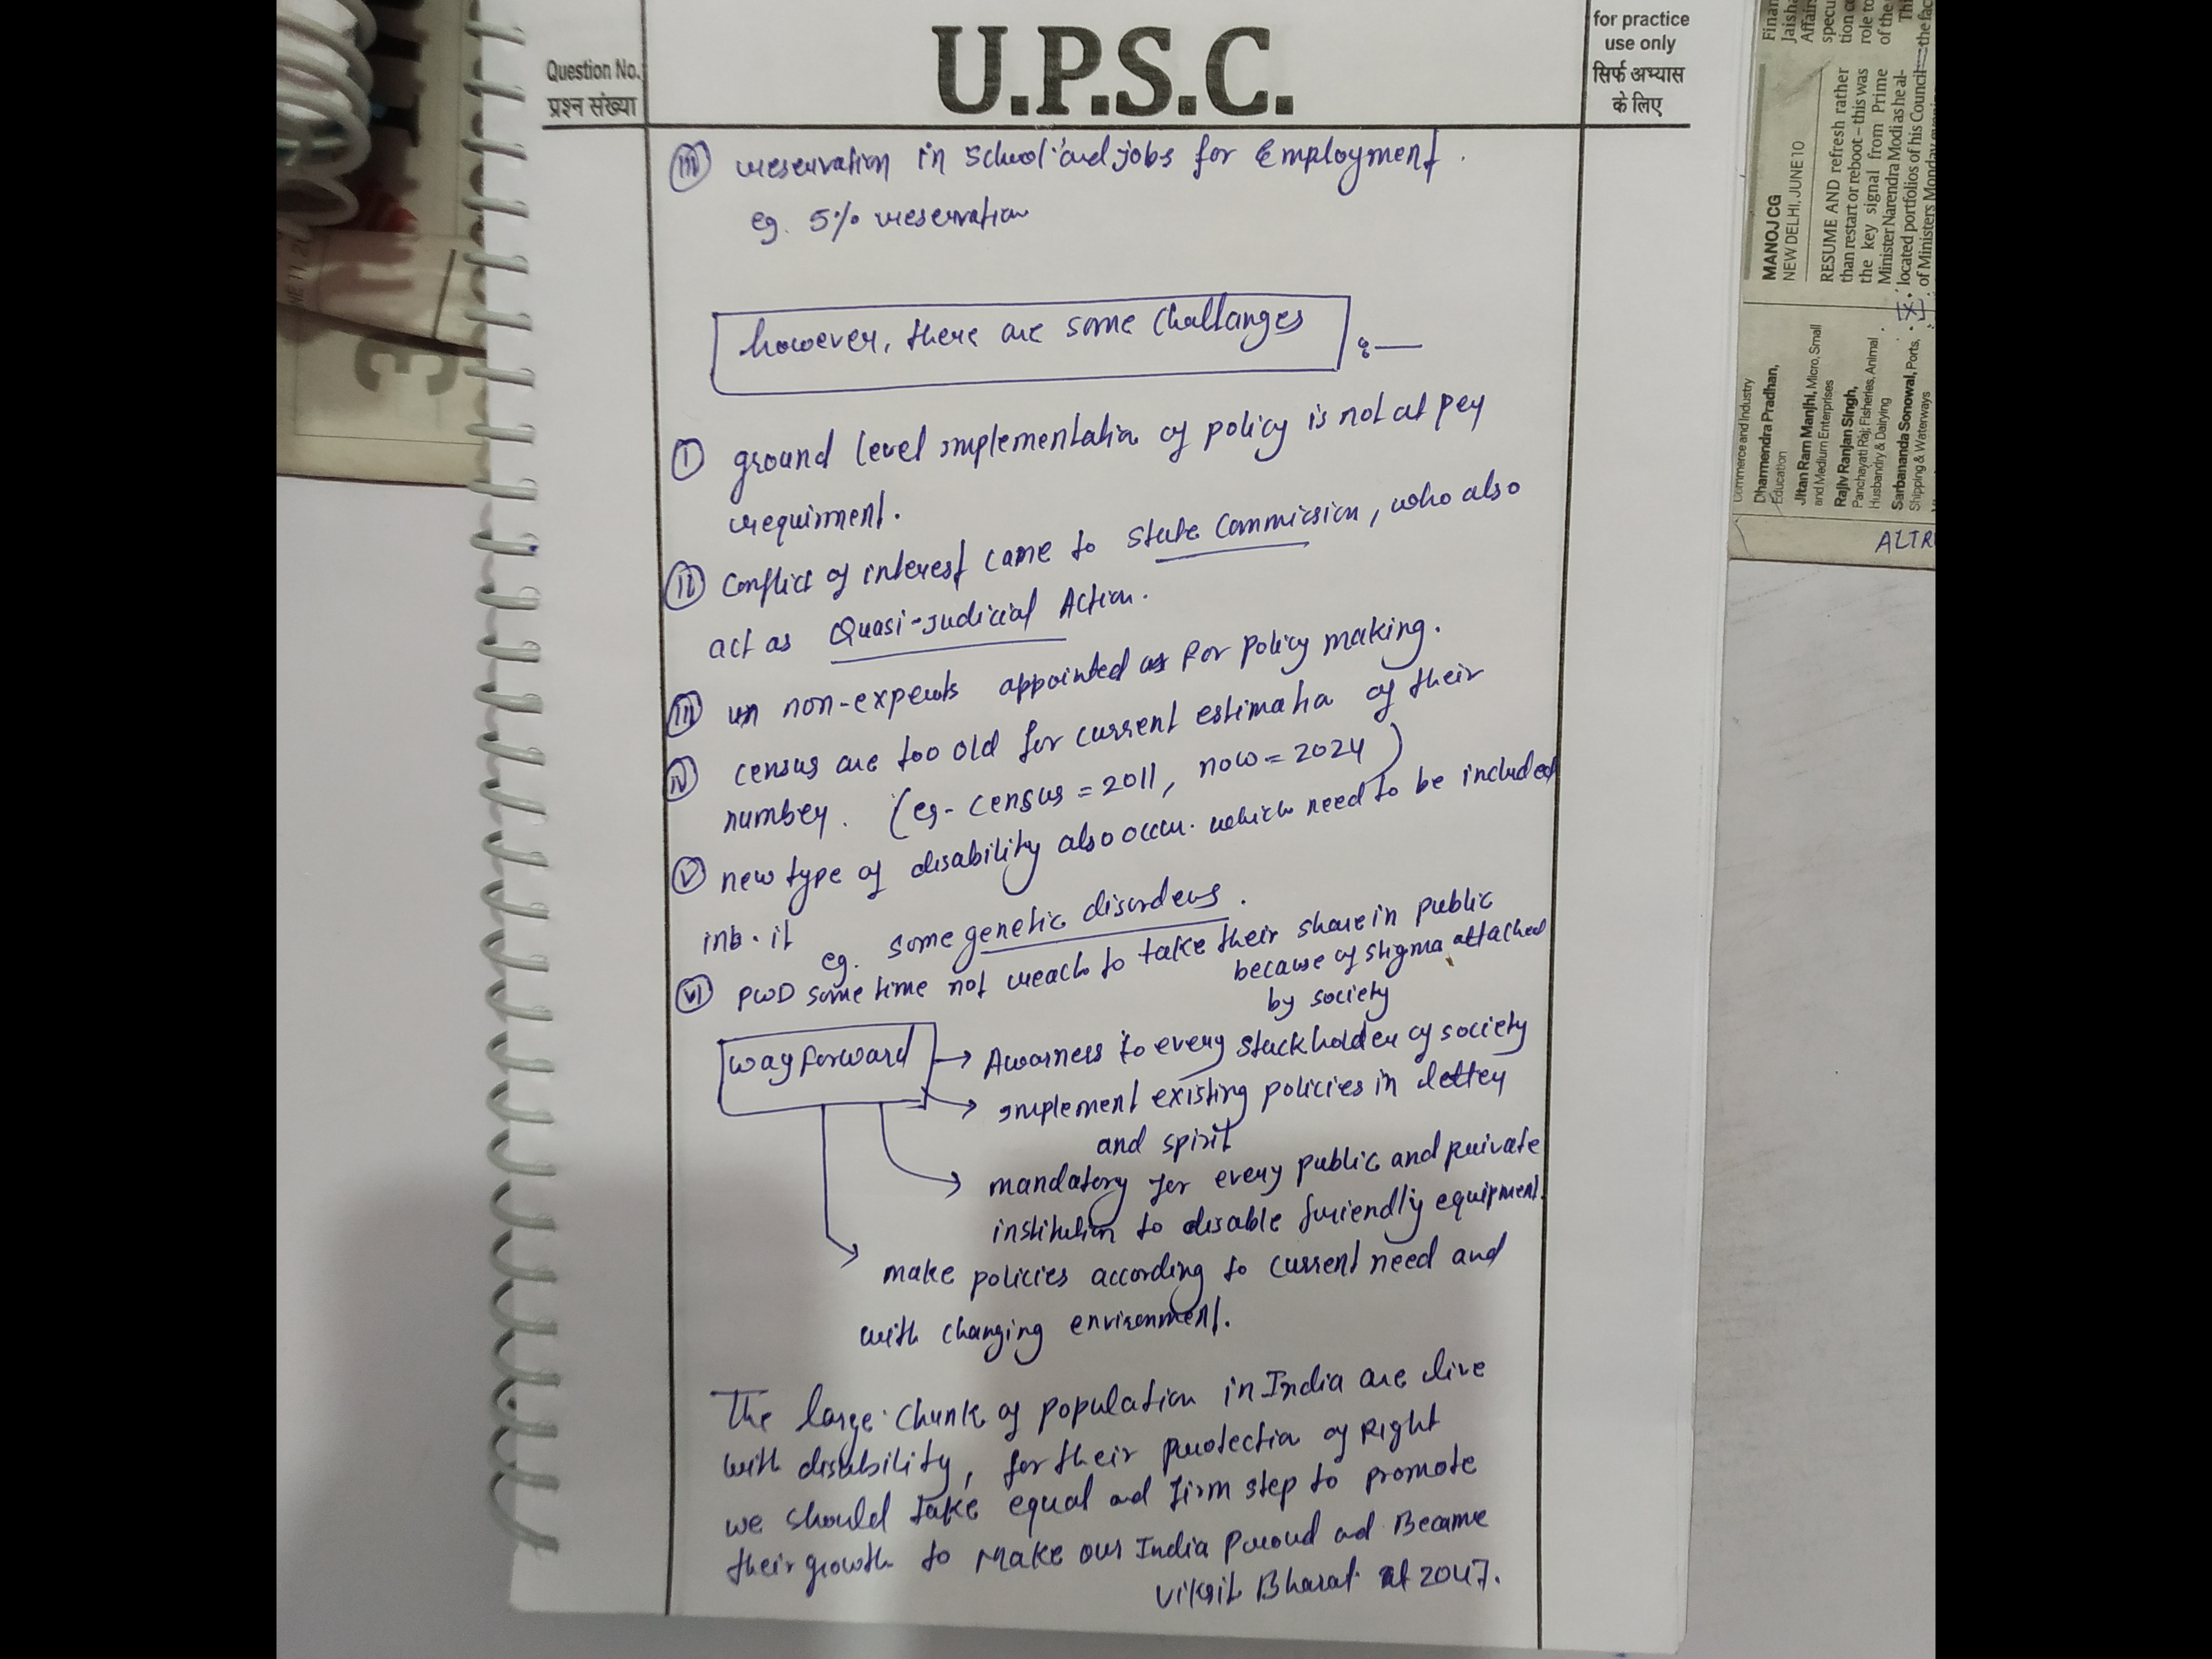 Question No.
प्रश्न संख्या
U.P.S.C.
for practice
use only
सिर्फ अभ्यास
के लिए
(iii) reservation in School and jobs for Employment.
eg. 5% reservation
however, there are some challanges :—
(i) ground level implementation of policy is not at per
requirment.
(ii) Conflict of interest came to State Commission, who also
act as Quasi-judicial Action.
(iii) non-experts appointed as for policy making.
(iv) census are too old for current estimation of their
number. (eg- census = 2011, now = 2024)
(v) new type of disability also occur. which need to be included
into it eg. some genetic disorders.
(vi) PWD some time not reach to take their share in public
because of stigma attached
by society
way forward → Awarness to every stackholder of society
→ implement existing policies in letter
and spirit
→ mandatory for every public and private
institution to disable friendly equipment.
→ make policies according to current need and
with changing environment.
The large chunk of population in India are live
with disability, for their protection of Right
we should take equal and firm step to promote
their growth to make our India Proud and Became
Viksit Bharat at 2047.
MANOJ CG
NEW DELHI, JUNE 10
RESUME AND refresh rather
than restart or reboot – this was
the key signal from Prime
Minister Narendra Modi as he al-
located portfolios of his Council
of Ministers Monday
Commerce and Industry
Dharmendra Pradhan,
Education
Jitan Ram Manjhi, Micro, Small
and Medium Enterprises
Rajiv Ranjan Singh,
Panchayati Raj; Fisheries, Animal
Husbandry & Dairying
Sarbananda Sonowal, Ports,
Shipping & Waterways